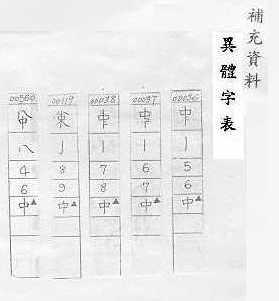 補充資料
異體字表
00036
丨
5
6
中▲
00037
丨
6
7
中▲
00038
丨
7
8
中▲
00119
亅
8
9
中▲
八
4
6
中▲